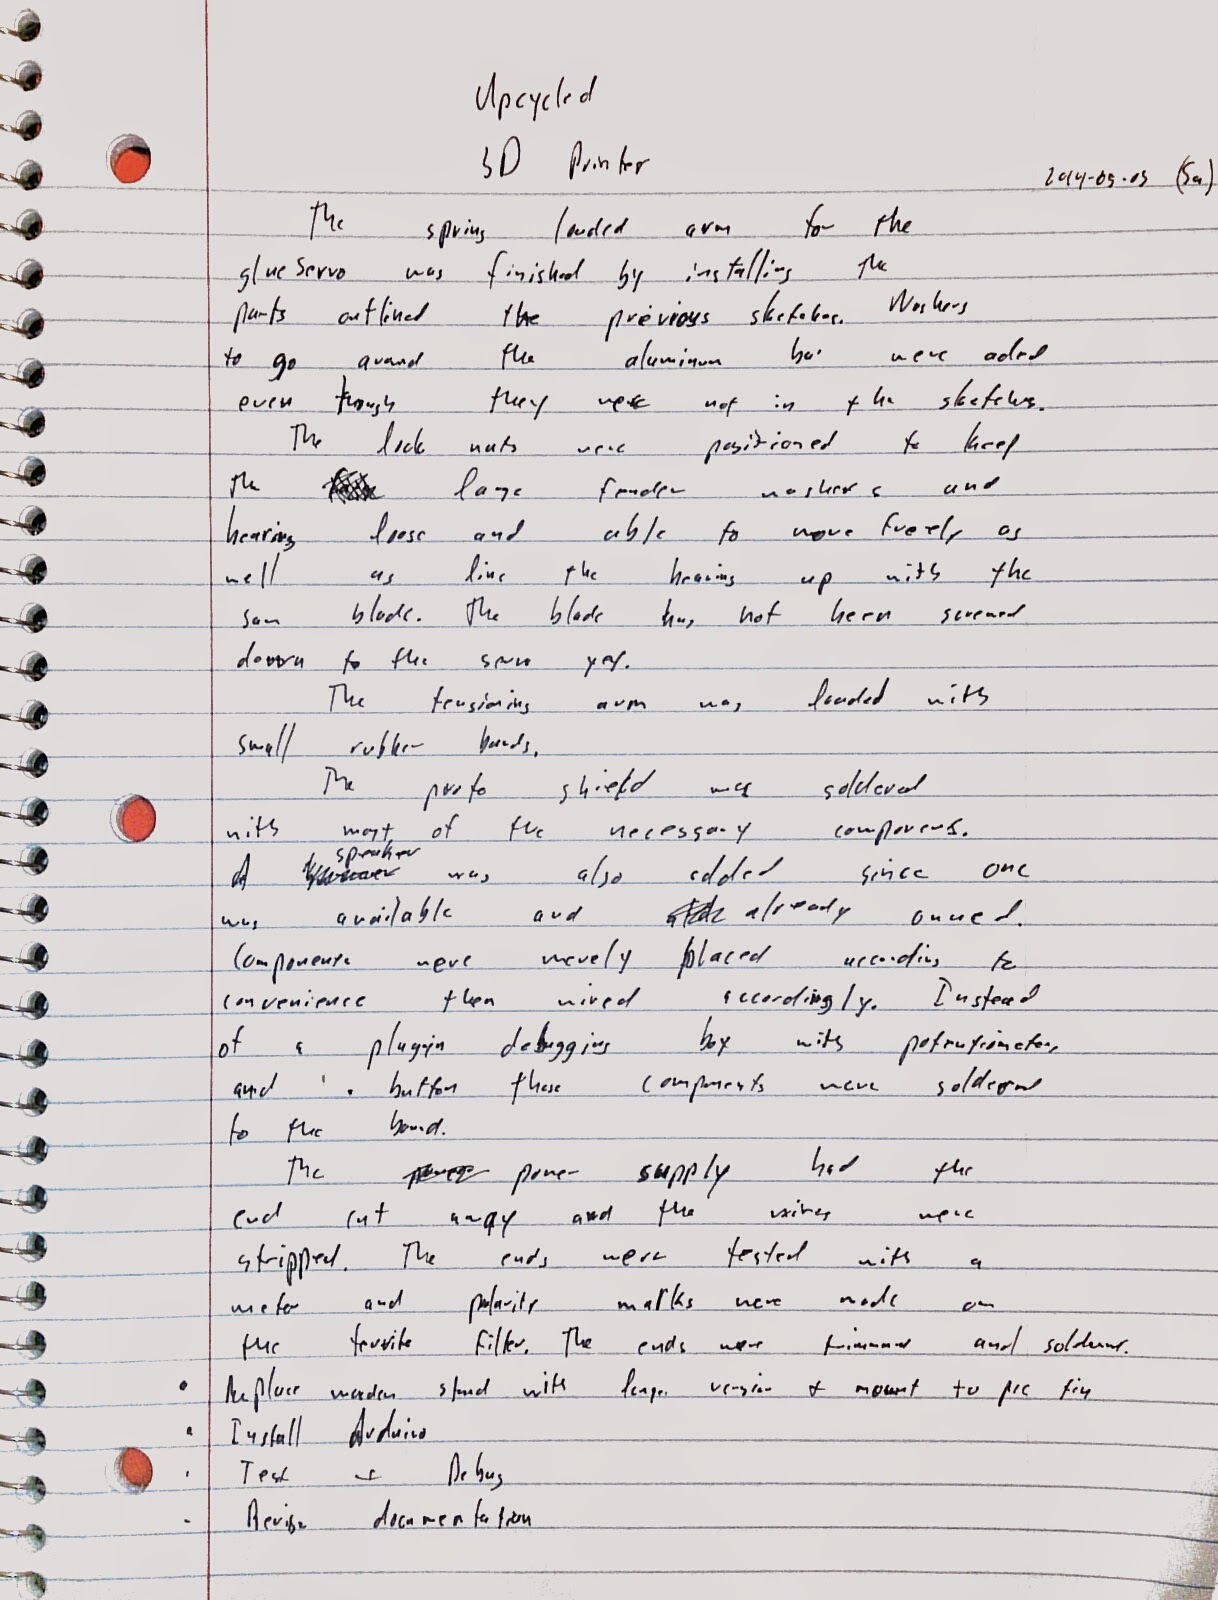 Upcycled
3D Printer
2014-05-03 (Sa)
The spring loaded arm for the
glue servo was finished by installing the
parts outlined the previous sketches. Washers
to go around the aluminum bar were aded
even though they were not in the sketches.
The lock nuts were positioned to keep
the large fender washers and
bearing loose and able to move freely as
well as line the bearing up with the
saw blade. The blade has not been screwed
down to the servo yet.
The tensioning arm was loaded with
small rubber bands.
The proto shield was soldered
with most of the necessary components.
A speaker was also added since one
was available and already owned.
Components were merely placed according to
convenience then wired accordingly. Instead
of a plugin debugging box with potentiometers
and button these components were soldered
to the board.
The power supply had the
end cut away and the wires were
stripped. The ends were tested with a
meter and polarity marks were made on
the ferrite filter. The ends were trimmed and soldered.
• Replace wooden stand with larger version & mount to
• Install Arduino
• Test & Debug
- Revise documentation